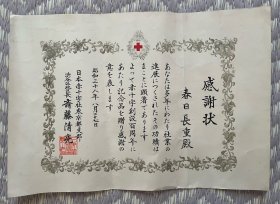 感謝状
春日長重殿
あなたは多年にわたり社業の
進展につくされたその功績は
まことに顕著であります
よって赤十字創設百周年に
あたり記念品を贈り感謝の
意を表します
昭和三十八年八月十九日
日本赤十字社東京都支部
齋藤清